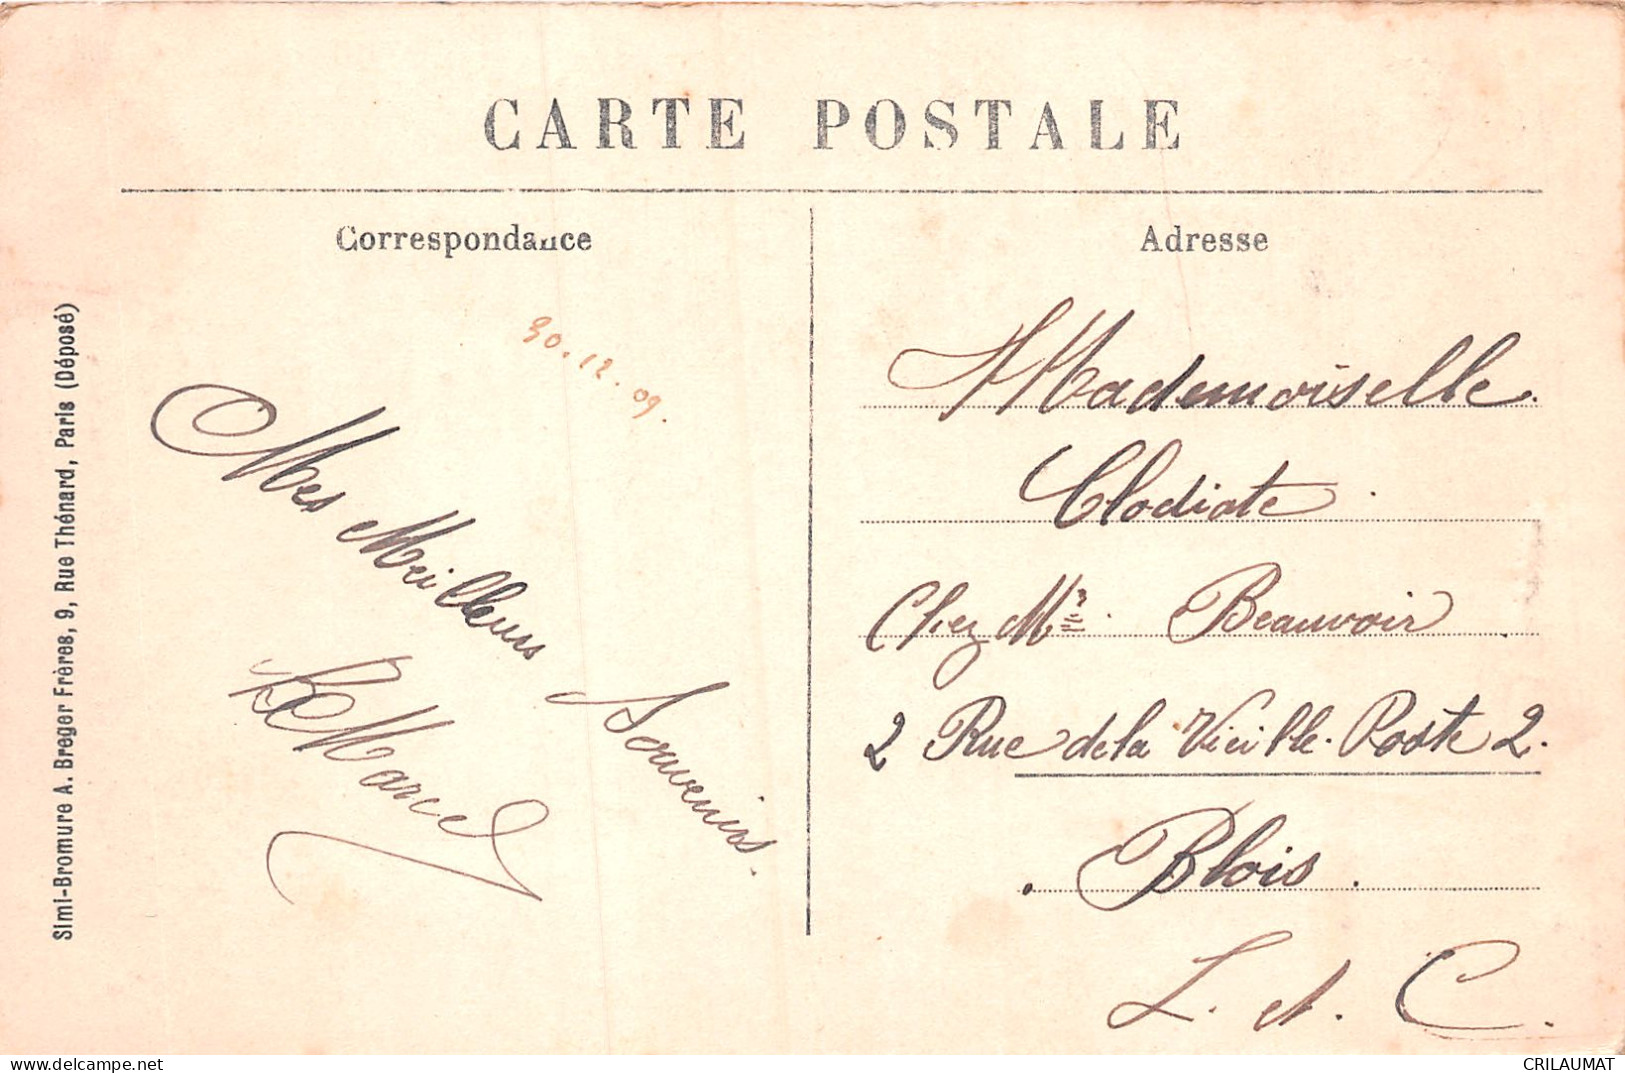 CARTE POSTALE
Correspondance
Adresse
30.12.09.
Mes Meilleurs Souvenirs.
Marcel
Mademoiselle.
Clodiate.
Chez Me. Beauvoir
2 Rue de la Vieille Poste 2.
Blois.
L. et. C.
Simi-Bromure A. Breger Frères, 9, Rue Thénard, Paris (Déposé)
CRILAUMAT